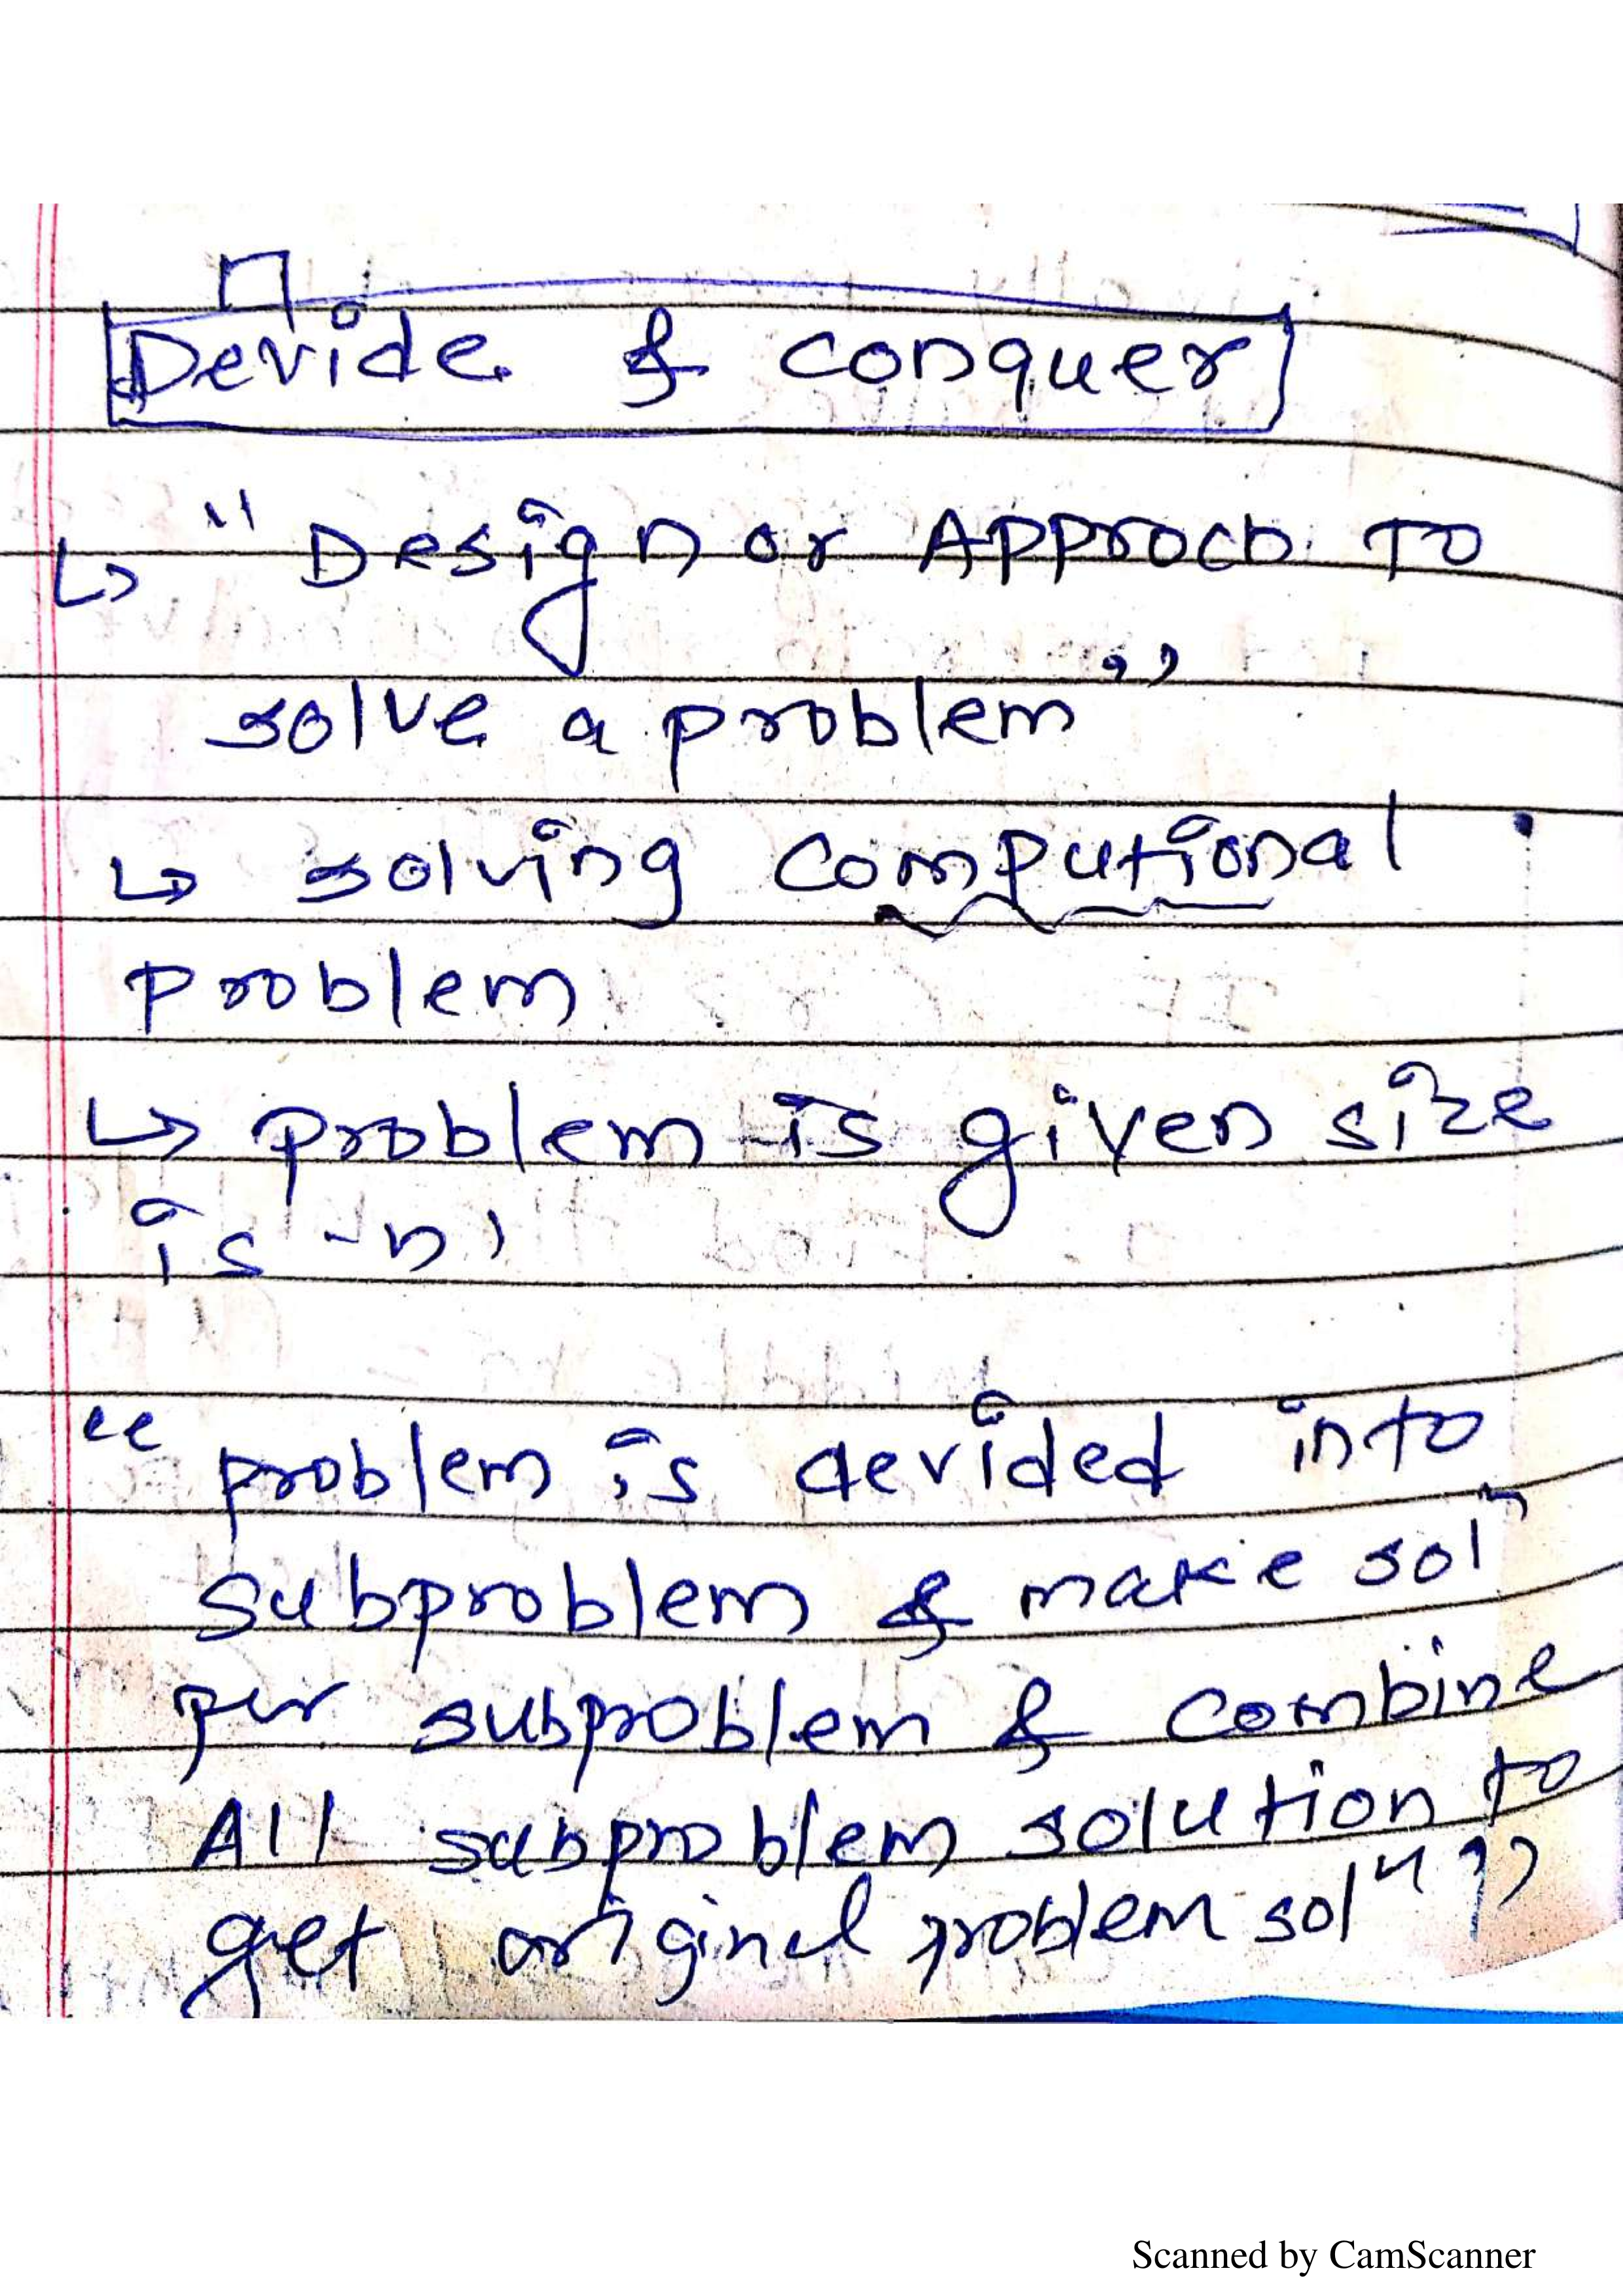 Devide & conquer
↳ " Design or Approch To
solve a problem"
↳ solving computional
problem
↳ problem is given size
is -n'
" problem is devided into
subproblem & make solⁿ
per subproblem & combine
All subproblem solution to
get original problem solⁿ "
Scanned by CamScanner